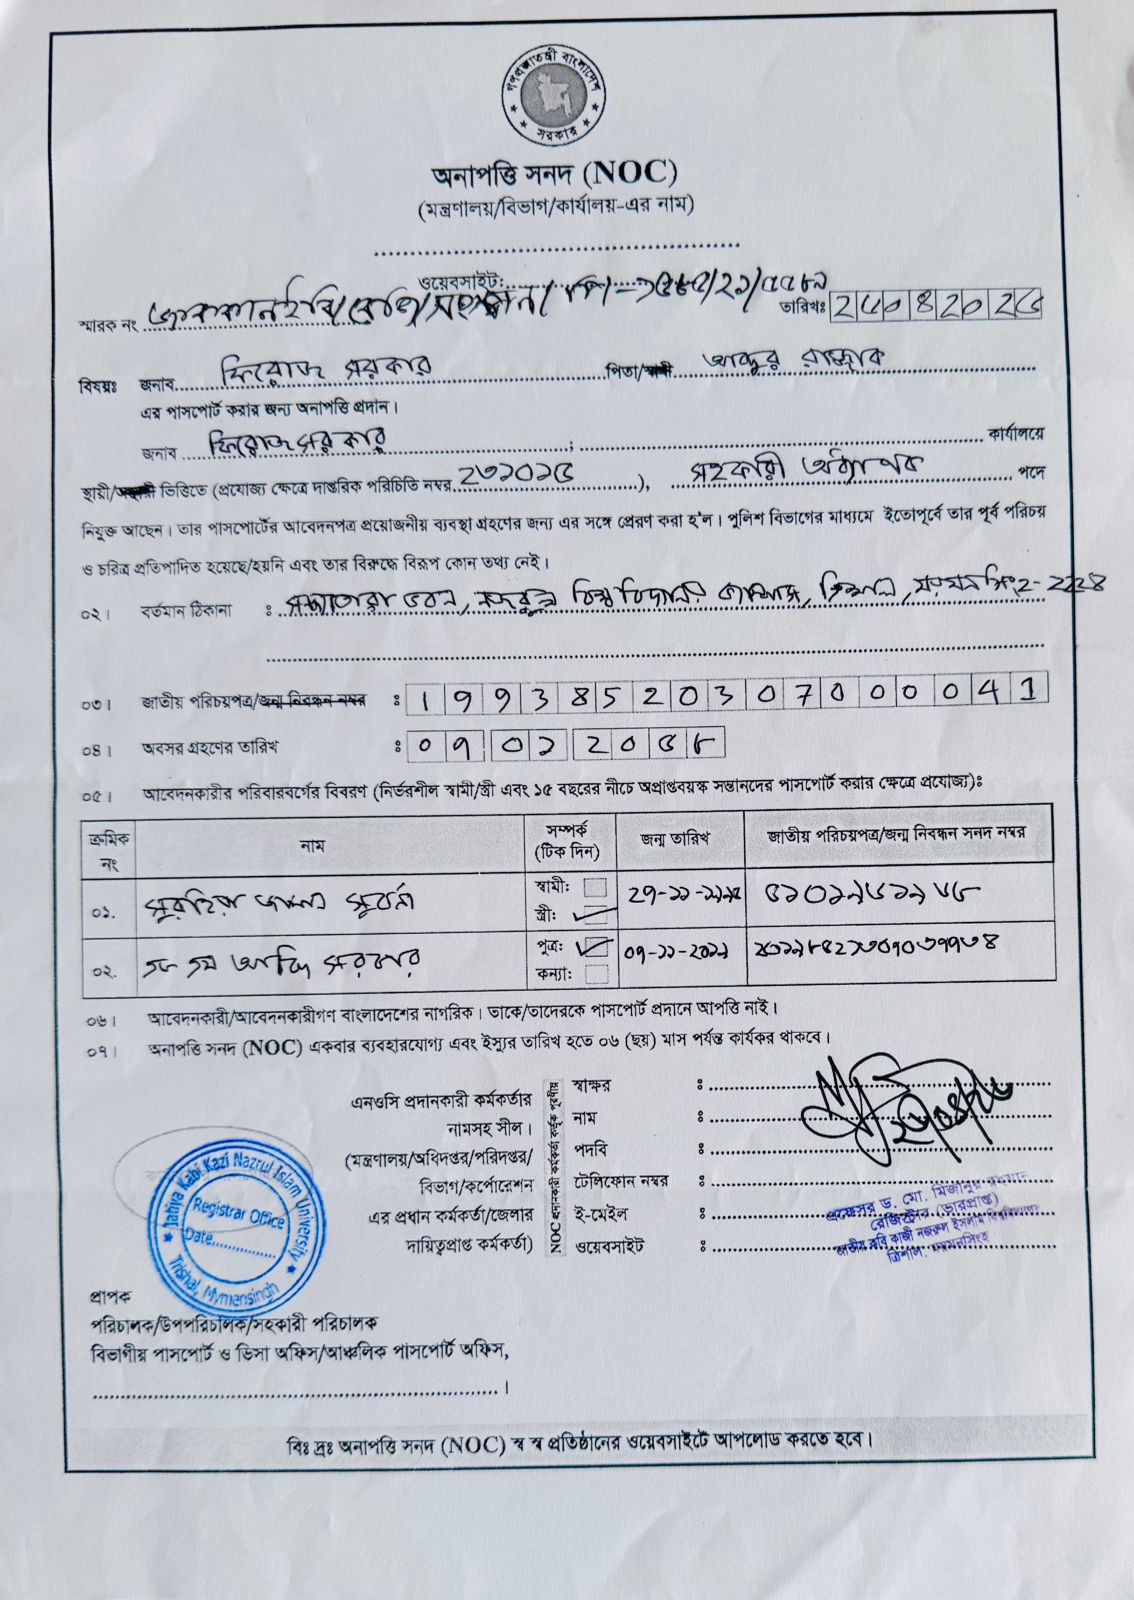 গণপ্রজাতন্ত্রী বাংলাদেশ
সরকার
অনাপত্তি সনদ (NOC)
(মন্ত্রণালয়/বিভাগ/কার্যালয়-এর নাম)
ওয়েবসাইট:
স্মারক নং
তারিখঃ ২৮০৪২০২৫
বিষয়ঃ জনাব ফিরোজ সরকার পিতা/স্বামী আব্দুর রাজ্জাক
এর পাসপোর্ট করার জন্য অনাপত্তি প্রদান।
জনাব ফিরোজ সরকার ; কার্যালয়ে
স্থায়ী/অস্থায়ী ভিত্তিতে (প্রযোজ্য ক্ষেত্রে দাপ্তরিক পরিচিতি নম্বর ২৩১০১৫), সহকারী অধ্যাপক পদে
নিযুক্ত আছেন। তার পাসপোর্টের আবেদনপত্র প্রয়োজনীয় ব্যবস্থা গ্রহণের জন্য এর সঙ্গে প্রেরণ করা হ'ল। পুলিশ বিভাগের মাধ্যমে ইতোপূর্বে তার পূর্ব পরিচয়
ও চরিত্র প্রতিপাদিত হয়েছে/হয়নি এবং তার বিরুদ্ধে বিরূপ কোন তথ্য নেই।
০২। বর্তমান ঠিকানা : ভবন, নজরুল বিশ্ববিদ্যালয় ক্যাম্পাস, ত্রিশাল, ময়মনসিংহ-২২২৪
০৩। জাতীয় পরিচয়পত্র/জন্ম নিবন্ধন নম্বর : 19938520307000041
০৪। অবসর গ্রহণের তারিখ : ০৭০১২০৫৮
০৫। আবেদনকারীর পরিবারবর্গের বিবরণ (নির্ভরশীল স্বামী/স্ত্রী এবং ১৫ বছরের নীচে অপ্রাপ্তবয়স্ক সন্তানদের পাসপোর্ট করার ক্ষেত্রে প্রযোজ্য):
ক্রমিক নং নাম সম্পর্ক (টিক দিন) জন্ম তারিখ জাতীয় পরিচয়পত্র/জন্ম নিবন্ধন সনদ নম্বর
০১. স্বামী: স্ত্রী: ✓
০২. এস এম সরকার পুত্র: ✓ কন্যা: ০৭-১১-২০১৯
০৬। আবেদনকারী/আবেদনকারীগণ বাংলাদেশের নাগরিক। তাকে/তাদেরকে পাসপোর্ট প্রদানে আপত্তি নাই।
০৭। অনাপত্তি সনদ (NOC) একবার ব্যবহারযোগ্য এবং ইস্যুর তারিখ হতে ০৬ (ছয়) মাস পর্যন্ত কার্যকর থাকবে।
এনওসি প্রদানকারী কর্মকর্তার
নামসহ সীল।
(মন্ত্রণালয়/অধিদপ্তর/পরিদপ্তর/
বিভাগ/কর্পোরেশন
এর প্রধান কর্মকর্তা/জেলার
দায়িত্বপ্রাপ্ত কর্মকর্তা)
NOC প্রদানকারী কর্মকর্তা কর্তৃক পূরণীয়
স্বাক্ষর :
নাম :
পদবি :
টেলিফোন নম্বর :
ই-মেইল :
ওয়েবসাইট :
প্রফেসর ড. মো. মিজানুর রহমান
রেজিস্ট্রার (ভারপ্রাপ্ত)
জাতীয় কবি কাজী নজরুল ইসলাম বিশ্ববিদ্যালয়
ত্রিশাল, ময়মনসিংহ
Jatiya Kabi Kazi Nazrul Islam University
Registrar Office
Date
Trishal, Mymensingh
প্রাপক
পরিচালক/উপপরিচালক/সহকারী পরিচালক
বিভাগীয় পাসপোর্ট ও ভিসা অফিস/আঞ্চলিক পাসপোর্ট অফিস,
।
বিঃ দ্রঃ অনাপত্তি সনদ (NOC) স্ব স্ব প্রতিষ্ঠানের ওয়েবসাইটে আপলোড করতে হবে।